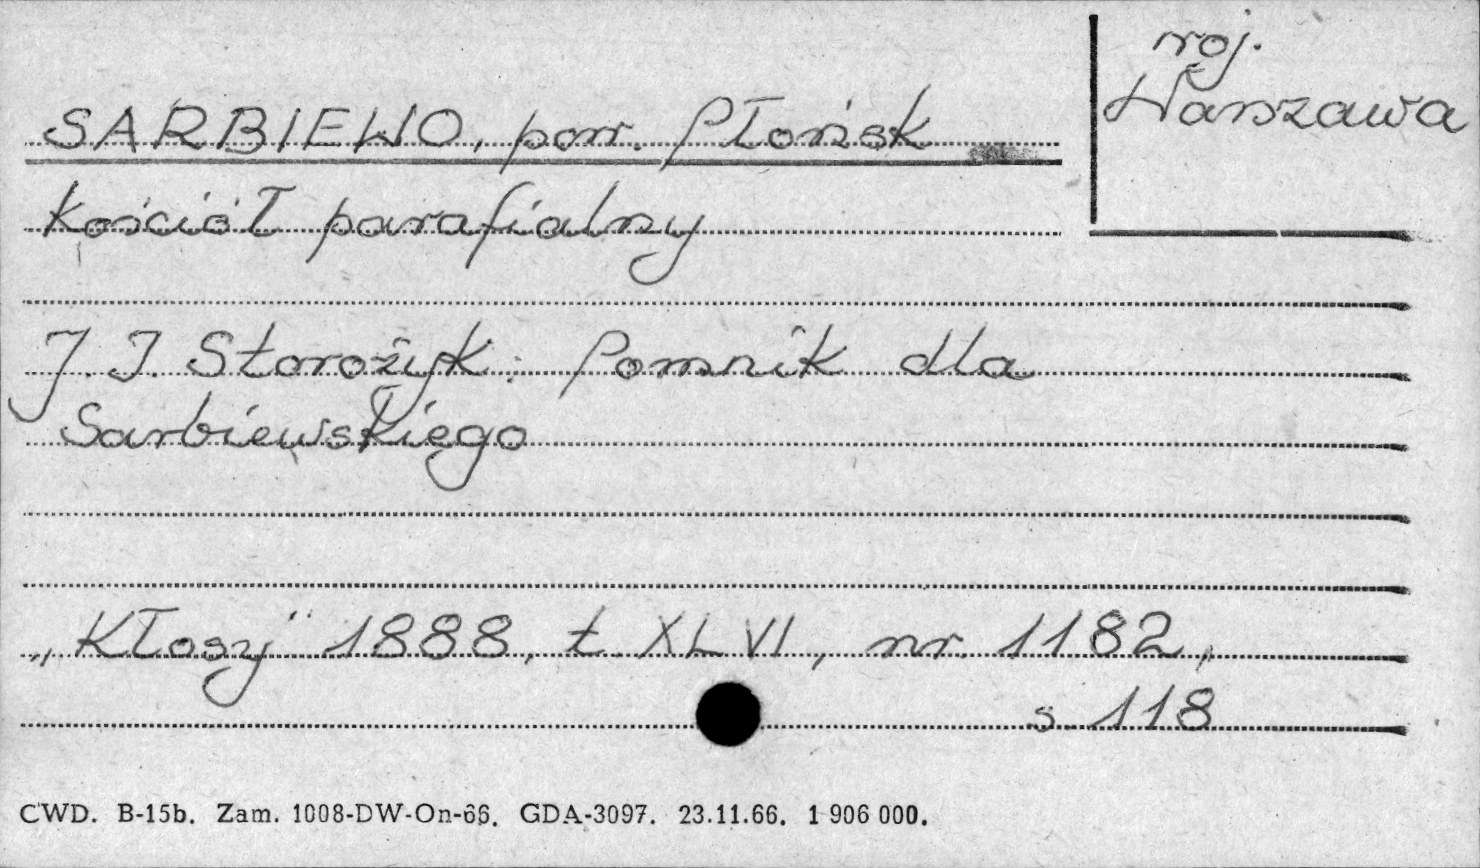 woj.
Warszawa
SARBIEWO, pow. Płońsk
kościół parafialny
J. J. Starożyk: Pomnik dla
Sarbiewskiego
„Kłosy" 1888, t. XLVI, nr. 1182,
s. 118
CWD. B-15b. Zam. 1008-DW-On-66. GDA-3097. 23.11.66. 1 906 000.